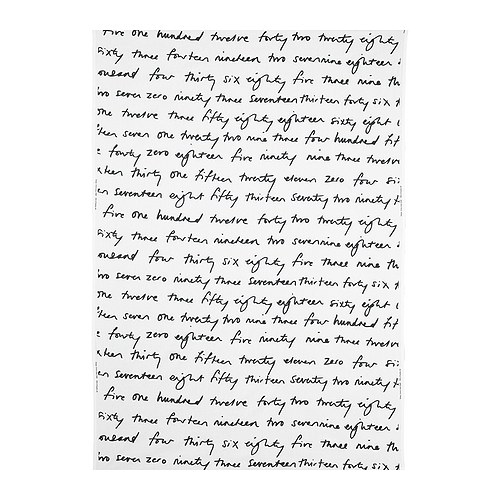 five one hundred twelve forty two twenty eighty
sixty three fourteen nineteen two seven nine eighteen
ousand four thirty six eighty five three nine th
wo seven zero ninety three seventeen thirteen forty six t
one twelve three fifty eighty eighteen sixty eight
teen seven one twenty two nine three four hundred fif
forty zero eighteen five ninety nine three twelve
teen thirty one fifteen twenty eleven zero four si
en seventeen eight fifty thirteen seventy two ninety
five one hundred twelve forty two twenty eighty
sixty three fourteen nineteen two seven nine eighteen
ousand four thirty six eighty five three nine th
wo seven zero ninety three seventeen thirteen forty six t
one twelve three fifty eighty eighteen sixty eight
teen seven one twenty two nine three four hundred fif
forty zero eighteen five ninety nine three twelve
teen thirty one fifteen twenty eleven zero four si
en seventeen eight fifty thirteen seventy two ninety
five one hundred twelve forty two twenty eighty
sixty three fourteen nineteen two seven nine eighteen
ousand four thirty six eighty five three nine th
wo seven zero ninety three seventeen thirteen forty six t